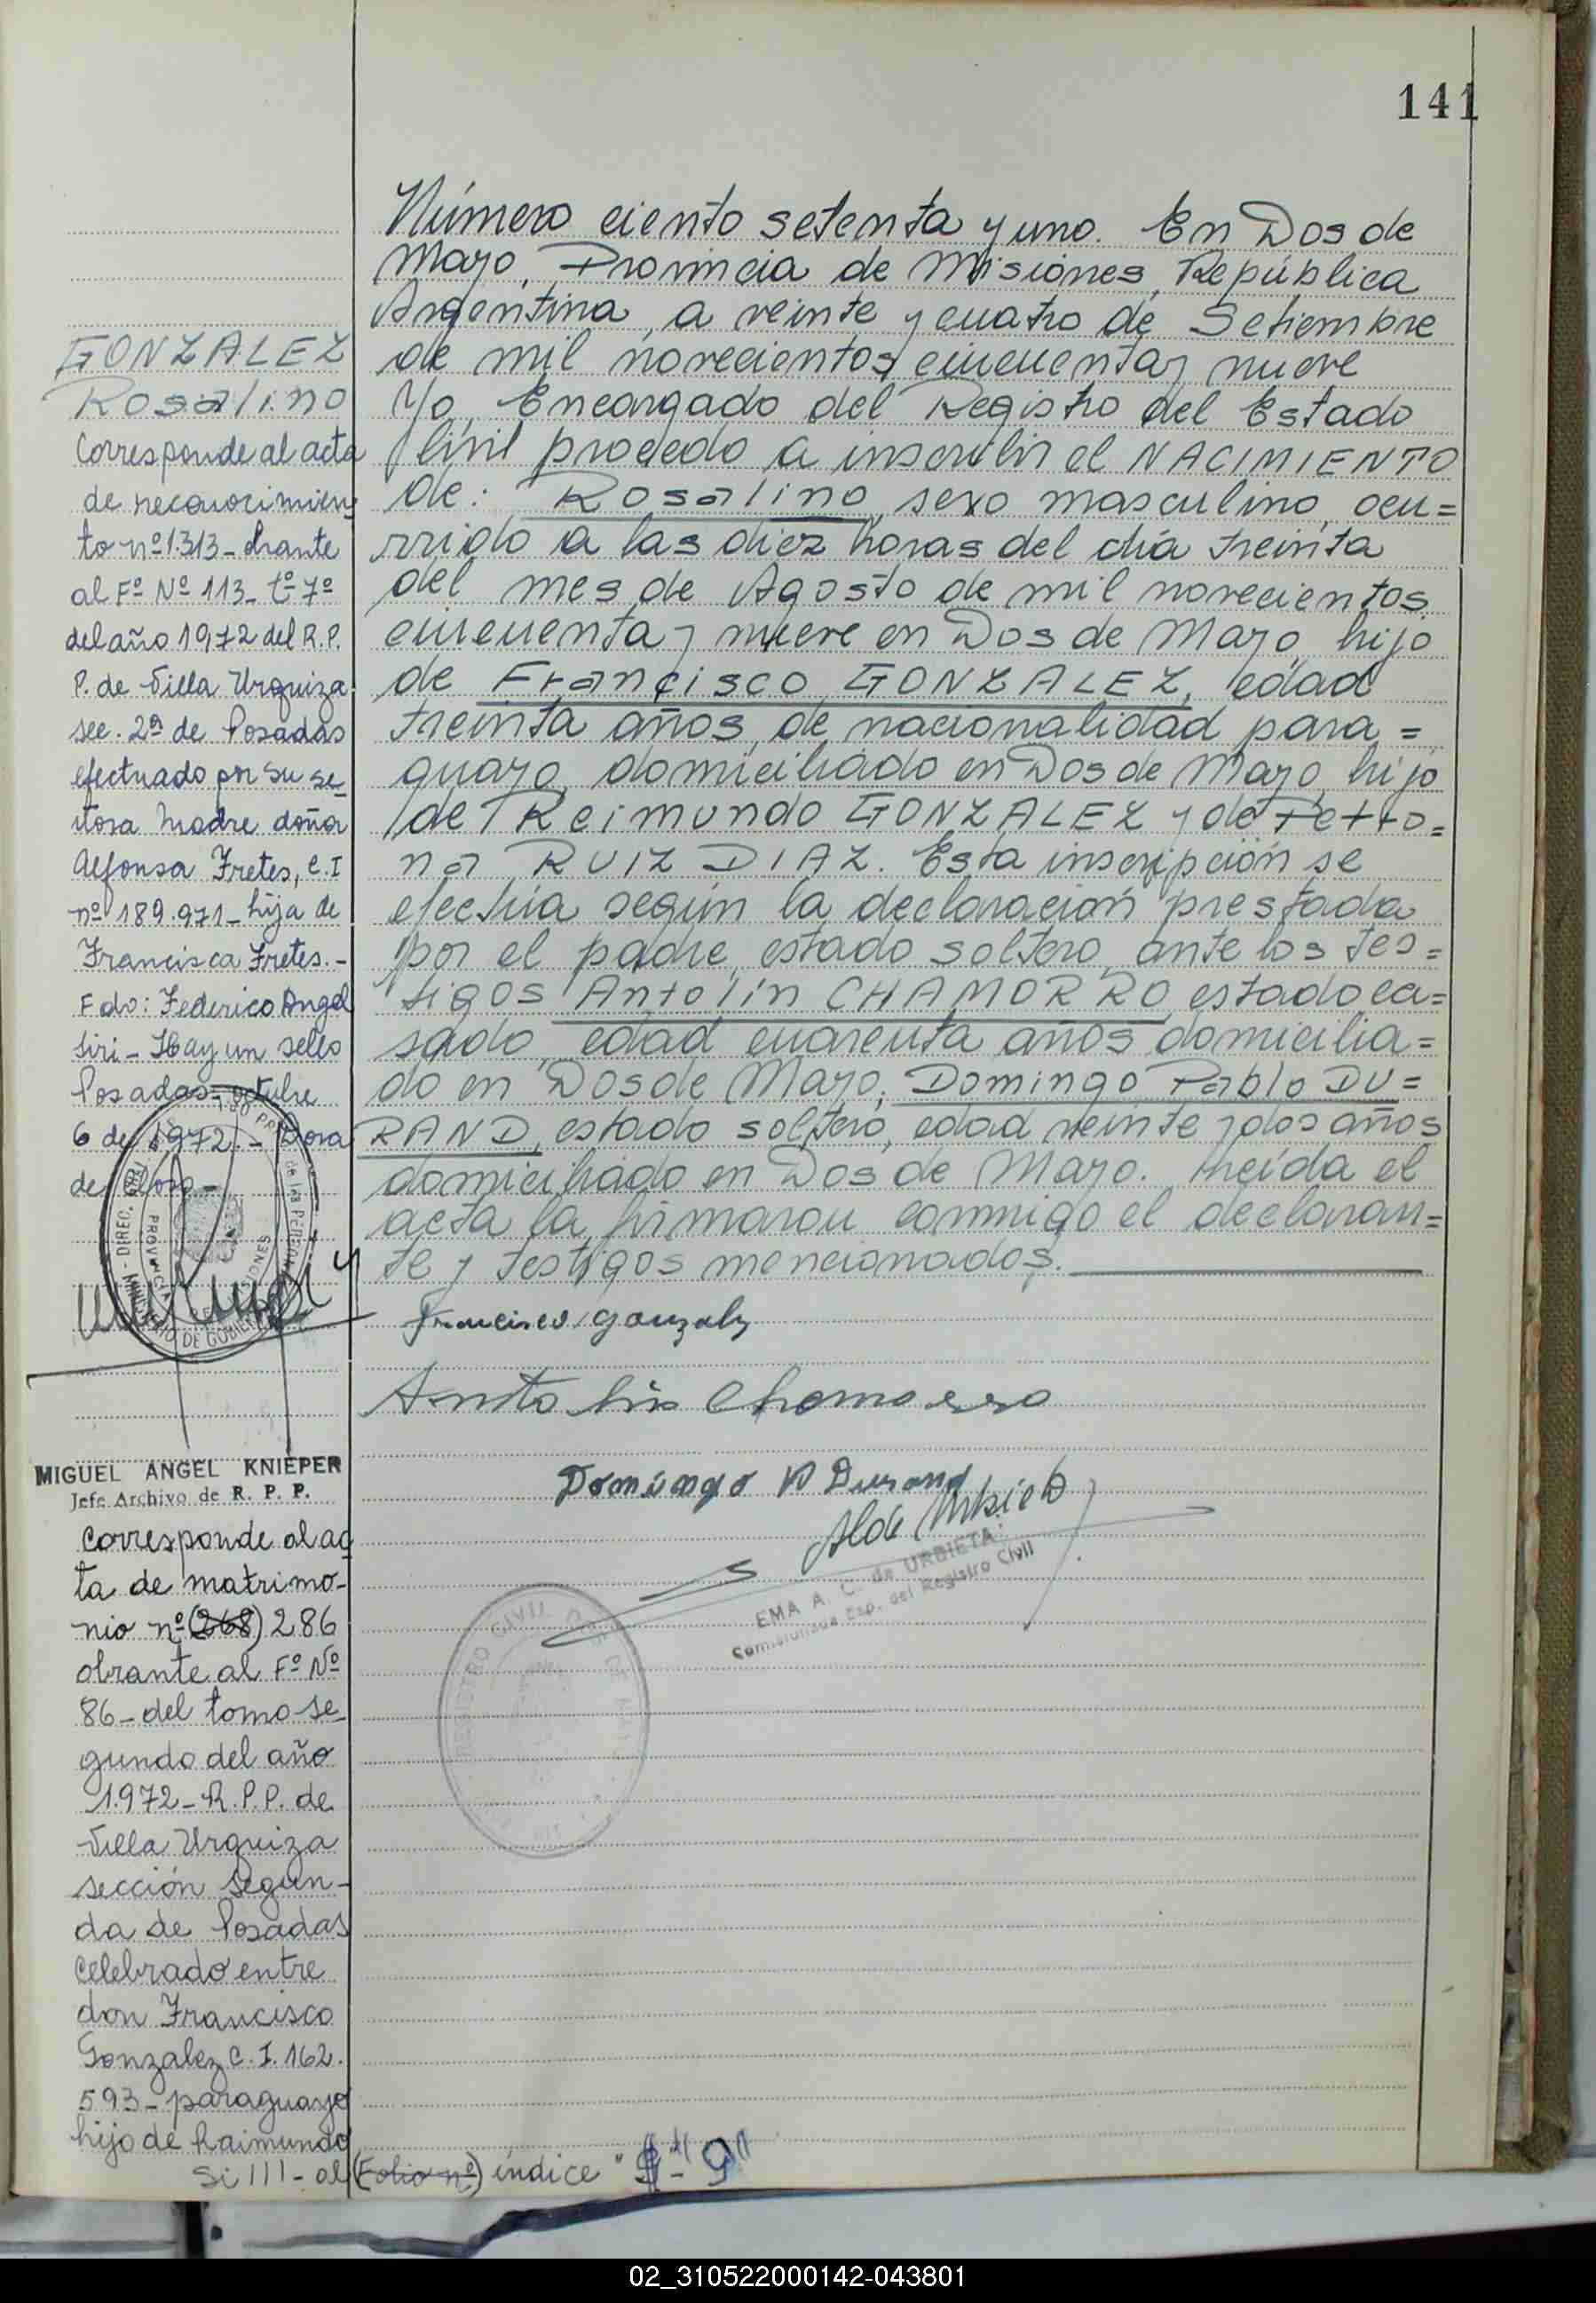 141
Número ciento setenta y uno. En Dos de
Mayo, Provincia de Misiones, República
Argentina, a veinte y cuatro de Setiembre
de mil novecientos cincuenta y nueve
Yo, Encargado del Registro del Estado
Civil procedo a inscribir el NACIMIENTO
de: Rosalino, sexo masculino, ocu=
rrido a las diez horas del día treinta
del mes de Agosto de mil novecientos
cincuenta y nueve en Dos de Mayo, hijo
de Francisco GONZALEZ, edad
treinta años, de nacionalidad para=
guayo, domiciliado en Dos de Mayo, hijo
de Reimundo GONZALEZ y de Petro=
na RUIZ DIAZ. Esta inscripción se
efectúa según la declaración prestada
por el padre, estado soltero, ante los tes=
tigos Antolín CHAMORRO estado ca=
sado, edad cuarenta años domicilia=
do en Dos de Mayo; Domingo Pablo DU=
RAND, estado soltero, edad veinte y dos años
domiciliado en Dos de Mayo. Leída el
acta la firmaron conmigo el declaran=
te y testigos mencionados.
Francisco Gonzalz
Domingo P Durand
EMA A. C. de URBIETA
Comisionada Esp. del Registro Civil
REGISTRO CIVIL
GONZALEZ
Rosalino
Corresponde al acta
de reconocimien
to nº 1.313 - obrante
al Fº Nº 113 - tº 7º
del año 1972 del R.P.
P. de Villa Urquiza
sec. 2ª de Posadas
efectuado por su se_
ñora Madre doña
Alfonsa Fretes, C.I
nº 189.971 - hija de
Francisca Fretes. -
Fdo: Federico Angel
Siri - Hay un sello
Posadas = octubre
6 de 1972. -
MIGUEL ANGEL KNIEPER
Jefe Archivo de R. P. P.
Corresponde al ac
ta de matrimo-
nio nº (268) 286
obrante al Fº Nº
86 - del tomo se_
gundo del año
1.972 - R.P.P. de
Villa Urquiza
sección segun-
da de Posadas
celebrado entre
don Francisco
Gonzalez C.I. 162.
593 - paraguayo
hijo de Raimundo
Si III - al (Folio nº) índice
02_310522000142-043801